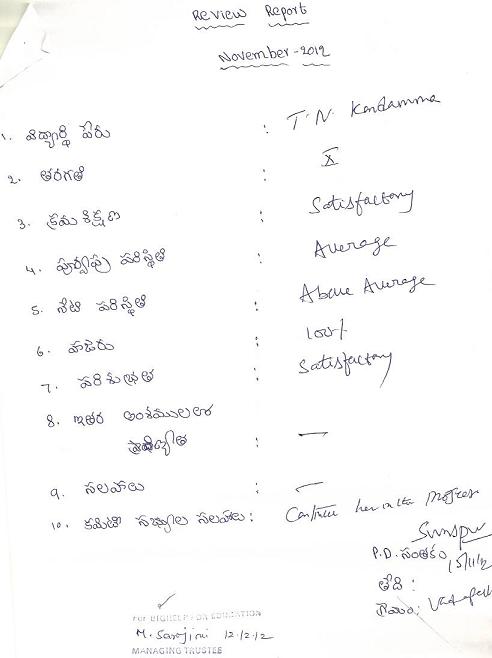 Review Report
November-2012
1. విద్యార్థి పేరు : T.N. Kondamma
2. తరగతి : X
3. క్రమశిక్షణ : Satisfactory
4. పూర్వపు పరిస్థితి : Average
5. నేటి పరిస్థితి : Above Average
6. హాజరు : 100%
7. పరిశుభ్రత : Satisfactory
8. ఇతర అంశములలో
ప్రావీణ్యత : —
9. సలహాలు : —
10. కమిటి సభ్యుల సలహాలు : Continue her in the Progress
P.D. సంతకం
15/11/12
తేది :
గ్రామం :
For BIGHELP FOR EDUCATION
M. Sarojini 12.12.12
MANAGING TRUSTEE